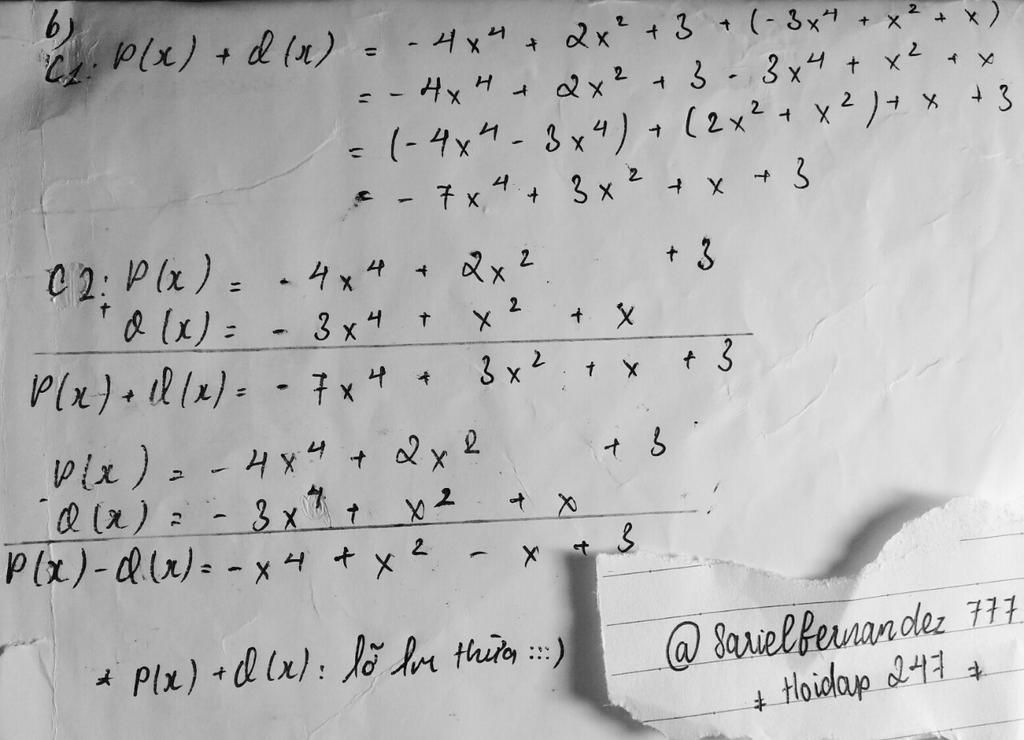 b)
C1: P(x) + Q(x) = - 4x⁴ + 2x² + 3 + (-3x⁴ + x² + x)
= - 4x⁴ + 2x² + 3 - 3x⁴ + x² + x
= (-4x⁴ - 3x⁴) + (2x² + x²) + x + 3
= - 7x⁴ + 3x² + x + 3
C2: P(x) = - 4x⁴ + 2x² + 3
+
Q(x) = - 3x⁴ + x² + x
P(x) + Q(x) = - 7x⁴ + 3x² + x + 3
P(x) = - 4x⁴ + 2x² + 3
-
Q(x) = - 3x⁴ + x² + x
P(x) - Q(x) = - x⁴ + x² - x + 3
* P(x) + Q(x): lỡ lm thừa :::)
@ Sarielfernandez 777
* Hoidap 247 *